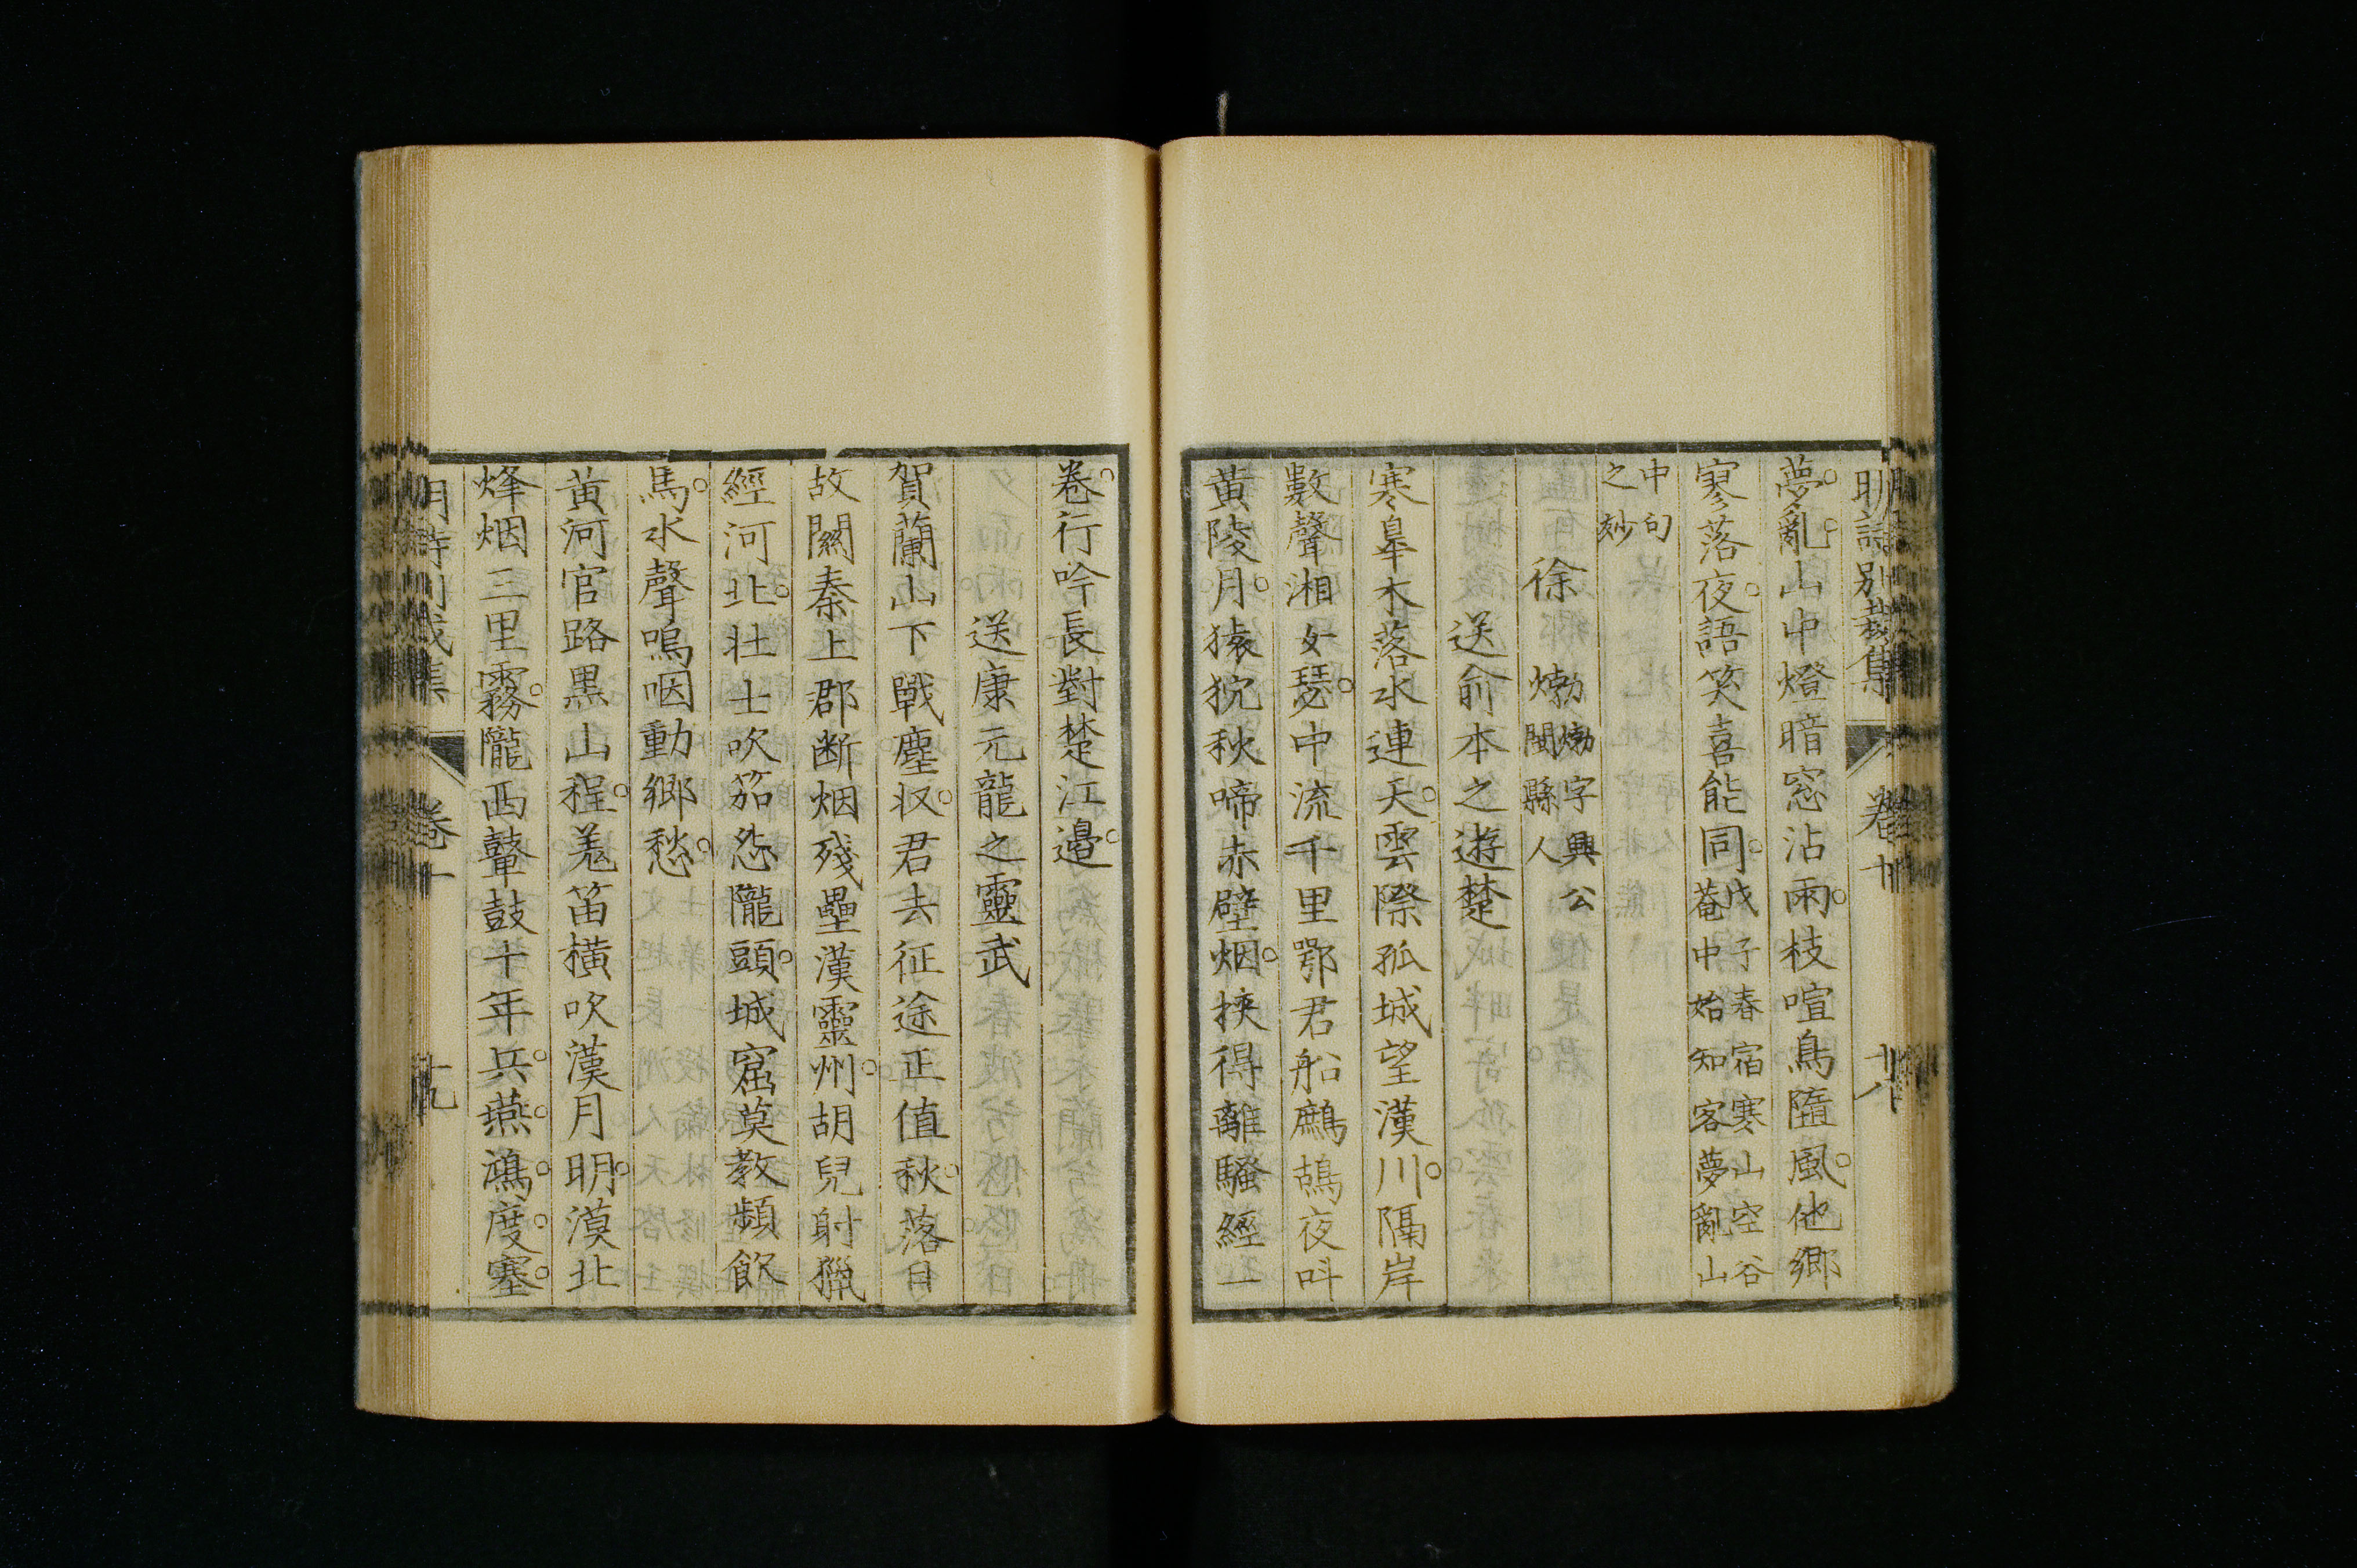 明詩别裁集 卷十 十八
夢亂山中燈暗窓沾雨枝喧鳥墮風他鄉
寥落夜語笑喜能同戊子春宿寒山空谷
菴中始知客夢亂山
中句
之妙
徐𤊹𤊹字興公
閩縣人
送俞本之遊楚
寒皐木落水連天雲際孤城望漢川隔岸
數聲湘女瑟中流千里鄂君船鷓鴣夜呌
黄陵月猿狖秋啼赤壁烟挾得離騷經一
卷行吟長對楚江邊
送康元龍之靈武
賀蘭山下戰塵収君去征途正值秋落日
故關秦上郡断烟殘壘漢靈州胡兒射獵
經河北壮士吹笳怨隴頭城窟莫教頻飲
馬水聲嗚咽動鄉愁
黄河官路黒山程羗笛橫吹漢月明漠北
烽烟三里霧隴西鼙鼓十年兵燕鴻度塞
卷十 十九